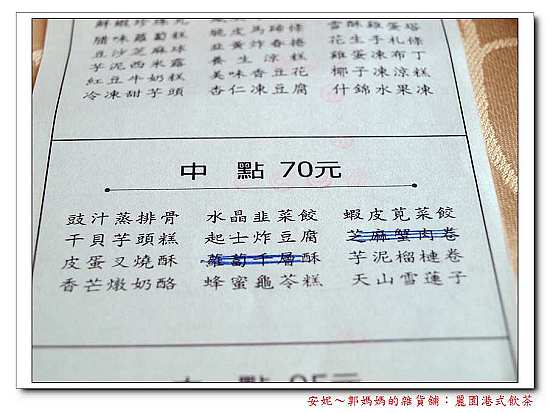 鮮蝦珍珠丸
臘味蘿蔔糕 脆皮馬蹄條 雪酥雞蛋塔
豆沙芝麻球 韭黃炸春捲 花生手札條
芋泥西米露 養生涼糕 雞蛋凍布丁
紅豆牛奶糕 美味香豆花 椰子凍涼糕
冷凍甜芋頭 杏仁凍豆腐 什錦水果凍
中點 70元
豉汁蒸排骨 水晶韭菜餃 蝦皮莧菜餃
干貝芋頭糕 起士炸豆腐 芝麻蟹肉卷
皮蛋叉燒酥 蘿蔔千層酥 芋泥榴槤卷
香芒燉奶酪 蜂蜜龜苓糕 天山雪蓮子
安妮～郭媽媽的雜貨舖：麗園港式飲茶